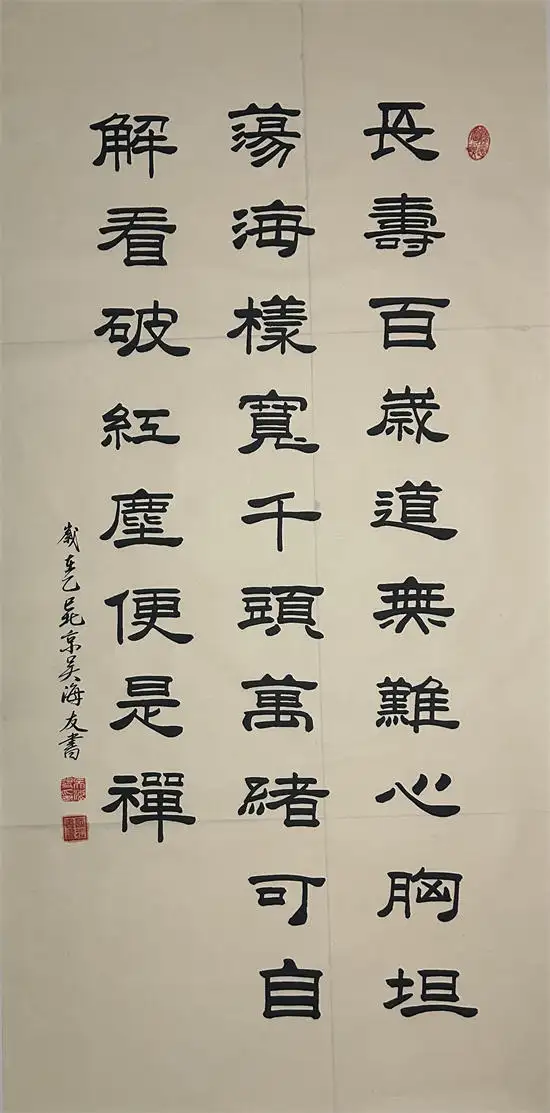 長壽百歲道無難心胸坦
蕩海樣寬千頭萬緒可自
解看破紅塵便是禪
歲在乙巳北京吴海友書